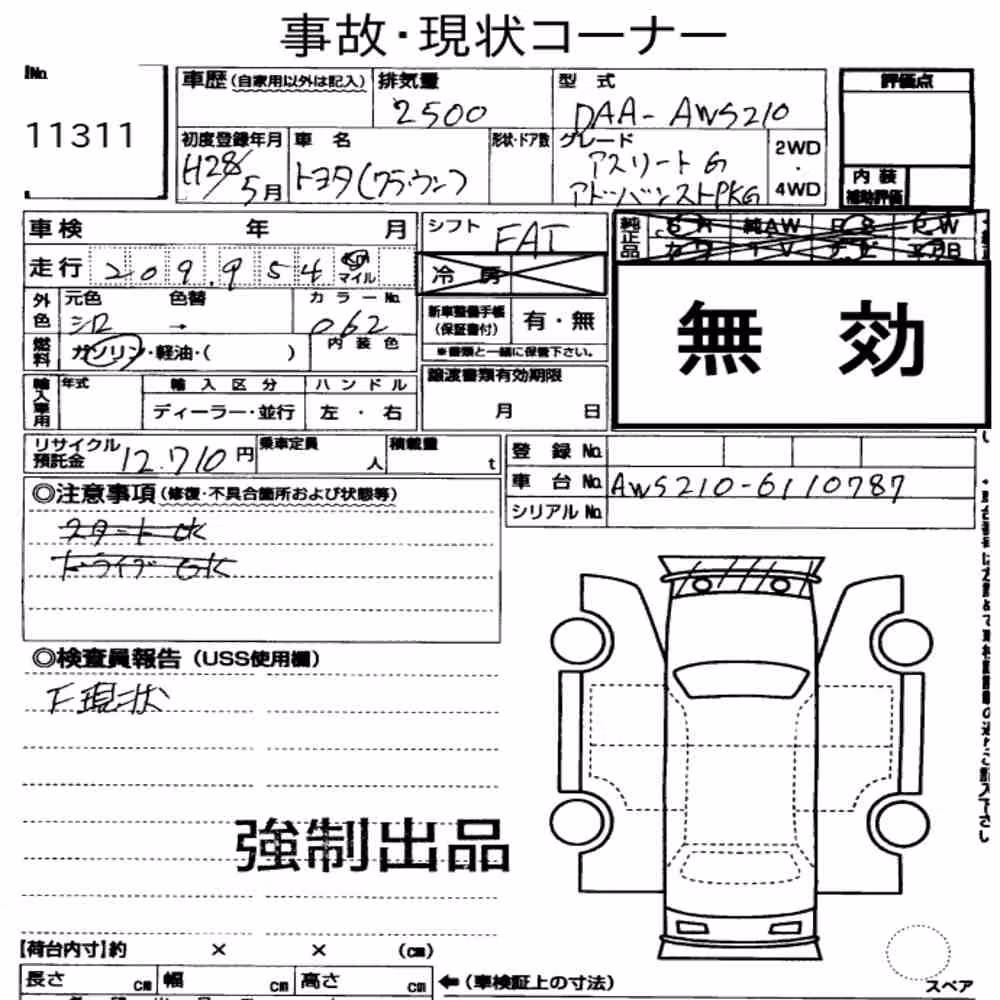 事故・現状コーナー
No.
11311
車歴(自家用以外は記入)
排気量
2500
型 式
DAA-AWS210
評価点
初度登録年月
H28/5月
車 名
トヨタ(クラウン)
形状・ドア数
グレード
アスリートG
アドバンストPKG
2WD
・
4WD
内装
補助評価
車検 年 月
シフト
FAT
純正品
純AW
走行
209,954
km
マイル
冷 房
無 効
外色
元色
シロ
色替
→
カラーNo.
062
内装色
新車整備手帳
(保証書付)
有・無
※書類と一緒に保管下さい。
燃料
ガソリン・軽油・( )
輸入車用
年式
輸入区分
ディーラー・並行
ハンドル
左 ・ 右
譲渡書類有効期限
月 日
リサイクル
預託金
12,710円
乗車定員
人
積載量
t
登 録 No.
車 台 No.
AWS210-6110787
シリアルNo.
◎注意事項(修復・不具合箇所および状態等)
スタートOK
ドライブOK
◎検査員報告(USS使用欄)
下現状
強制出品
【荷台内寸】約 × × (cm)
長さ cm 幅 cm 高さ cm
←(車検証上の寸法)
スペア